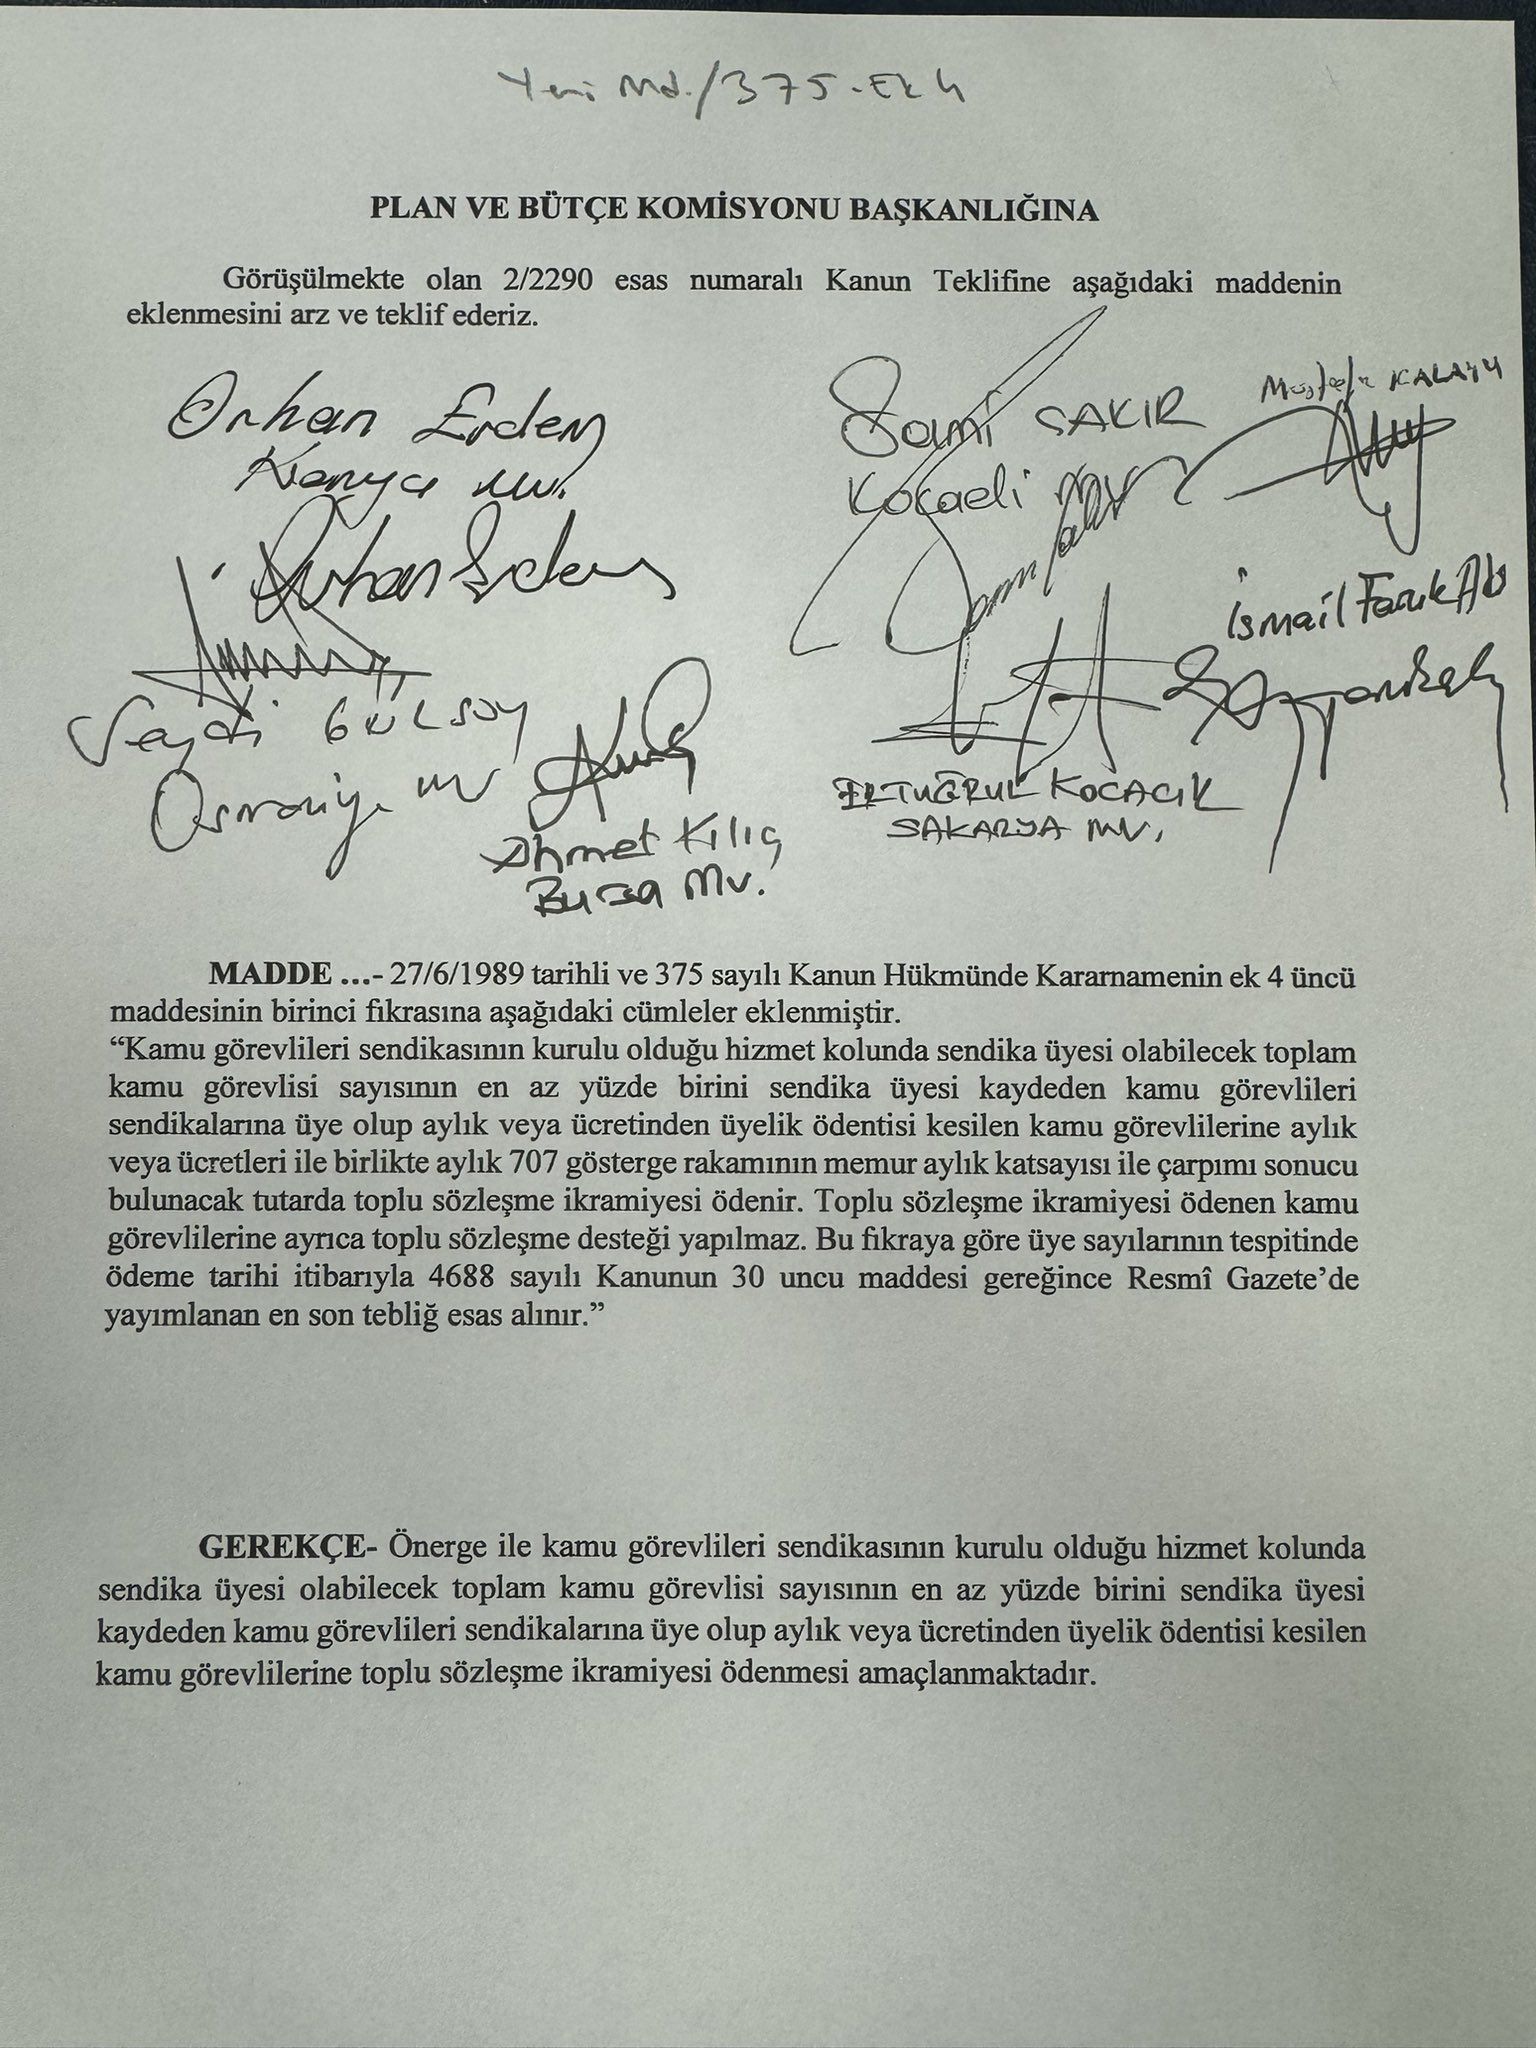 Yeni Md./375-Ek 4
PLAN VE BÜTÇE KOMİSYONU BAŞKANLIĞINA
Görüşülmekte olan 2/2290 esas numaralı Kanun Teklifine aşağıdaki maddenin
eklenmesini arz ve teklif ederiz.
Orhan Erdem
Konya mv.
Orhan Erdem
Seydi GÜLSOY
Osmaniye mv
Ahmet Kılıç
Bursa Mv.
Sami ÇAKIR
Kocaeli
Mustafa KALAYCI
İsmail Faruk
ERTUĞRUL KOCACIK
SAKARYA MV.
MADDE ...- 27/6/1989 tarihli ve 375 sayılı Kanun Hükmünde Kararnamenin ek 4 üncü
maddesinin birinci fıkrasına aşağıdaki cümleler eklenmiştir.
“Kamu görevlileri sendikasının kurulu olduğu hizmet kolunda sendika üyesi olabilecek toplam
kamu görevlisi sayısının en az yüzde birini sendika üyesi kaydeden kamu görevlileri
sendikalarına üye olup aylık veya ücretinden üyelik ödentisi kesilen kamu görevlilerine aylık
veya ücretleri ile birlikte aylık 707 gösterge rakamının memur aylık katsayısı ile çarpımı sonucu
bulunacak tutarda toplu sözleşme ikramiyesi ödenir. Toplu sözleşme ikramiyesi ödenen kamu
görevlilerine ayrıca toplu sözleşme desteği yapılmaz. Bu fıkraya göre üye sayılarının tespitinde
ödeme tarihi itibarıyla 4688 sayılı Kanunun 30 uncu maddesi gereğince Resmî Gazete’de
yayımlanan en son tebliğ esas alınır.”
GEREKÇE- Önerge ile kamu görevlileri sendikasının kurulu olduğu hizmet kolunda
sendika üyesi olabilecek toplam kamu görevlisi sayısının en az yüzde birini sendika üyesi
kaydeden kamu görevlileri sendikalarına üye olup aylık veya ücretinden üyelik ödentisi kesilen
kamu görevlilerine toplu sözleşme ikramiyesi ödenmesi amaçlanmaktadır.